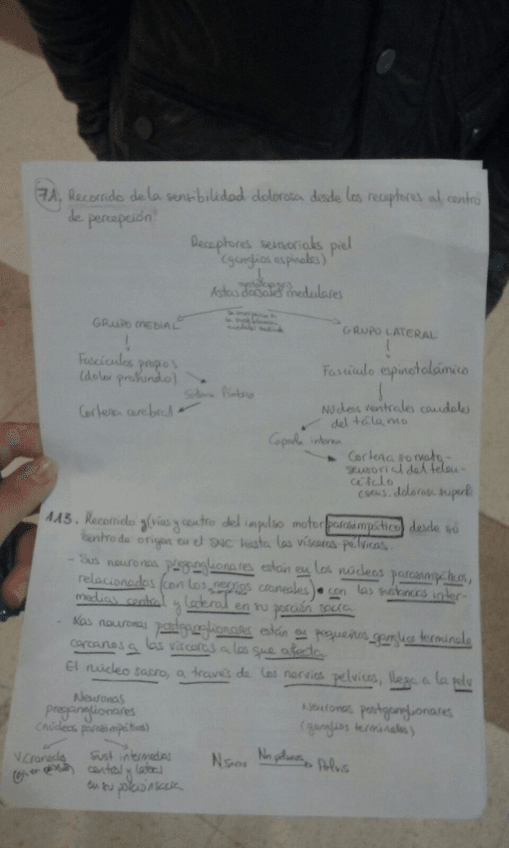 71. Recorrido de la sensibilidad dolorosa desde los receptores al centro
de percepción:
Receptores sensoriales piel
(ganglios espinales)
Astas dorsales medulares
GRUPO MEDIAL
GRUPO LATERAL
Fascículos propios
(dolor profundo)
Fascículo espinotalámico
Corteza cerebral
Núcleos ventrales caudales
del tálamo
Capsula interna
Corteza somato-
sensorial del telen-
céfalo
113. Recorrido y centro del impulso motor parasimpático desde su
centro de origen en el SNC hasta las vísceras pélvicas.
- Sus neuronas preganglionares están en los núcleos parasimpáticos,
relacionados (con los nervios craneales) con las sustancias inter-
medias central y lateral en su porción sacra.
- Las neuronas postganglionares están en pequeños ganglios terminale
cercanos a las vísceras a los que afecta.
El núcleo sacro, a través de los nervios pélvicos, llega a la pelv
Neuronas
preganglionares
(núcleos parasimpáticos)
Neuronas postganglionares
(ganglios terminales)
Sust. intermedias
central y lateral
en su porción sacra
Pelvis